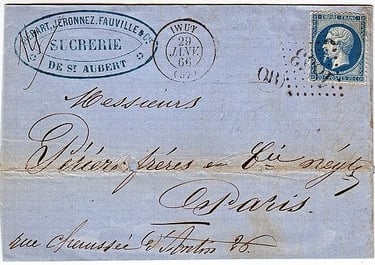 PART, JÉRONNEZ, FAUVILLE & Cie
SUCRERIE
DE St AUBERT
IWUY
29
JANV.
66
(57)
EMPIRE FRANC
OR
Messieurs
Périer frères et Cie négts
Paris.
rue chaussée d'Antin 26.